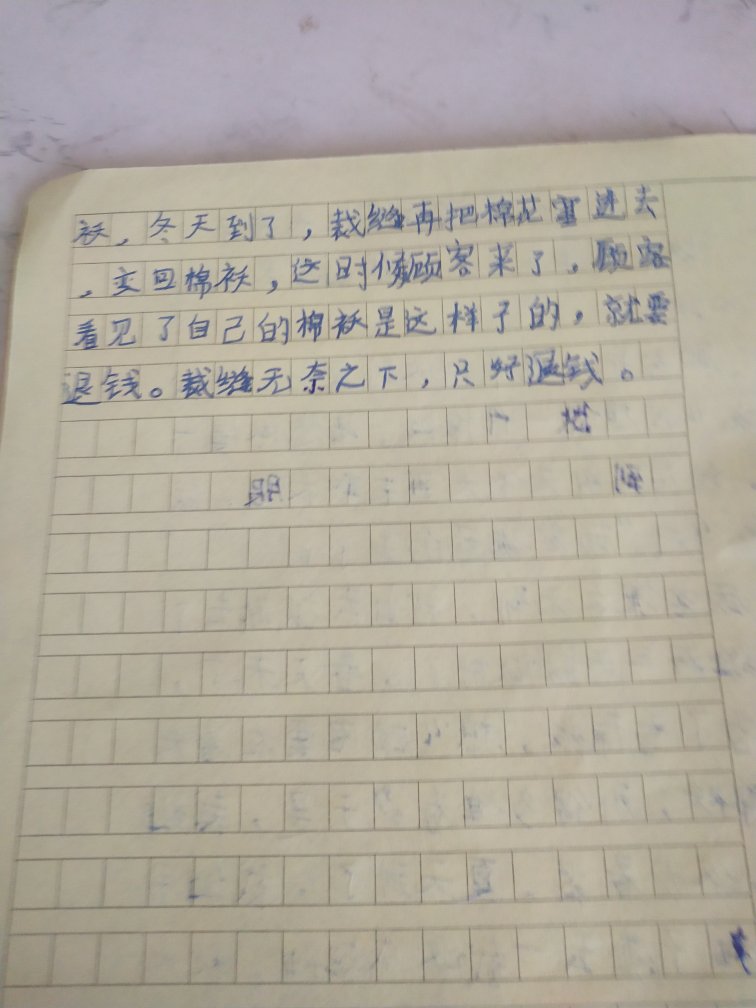 袄，冬天到了，裁缝再把棉花塞进去
，变回棉袄，这时候顾客来了，顾客
看见了自己的棉袄是这样子的，就要
退钱。裁缝无奈之下，只好退钱。